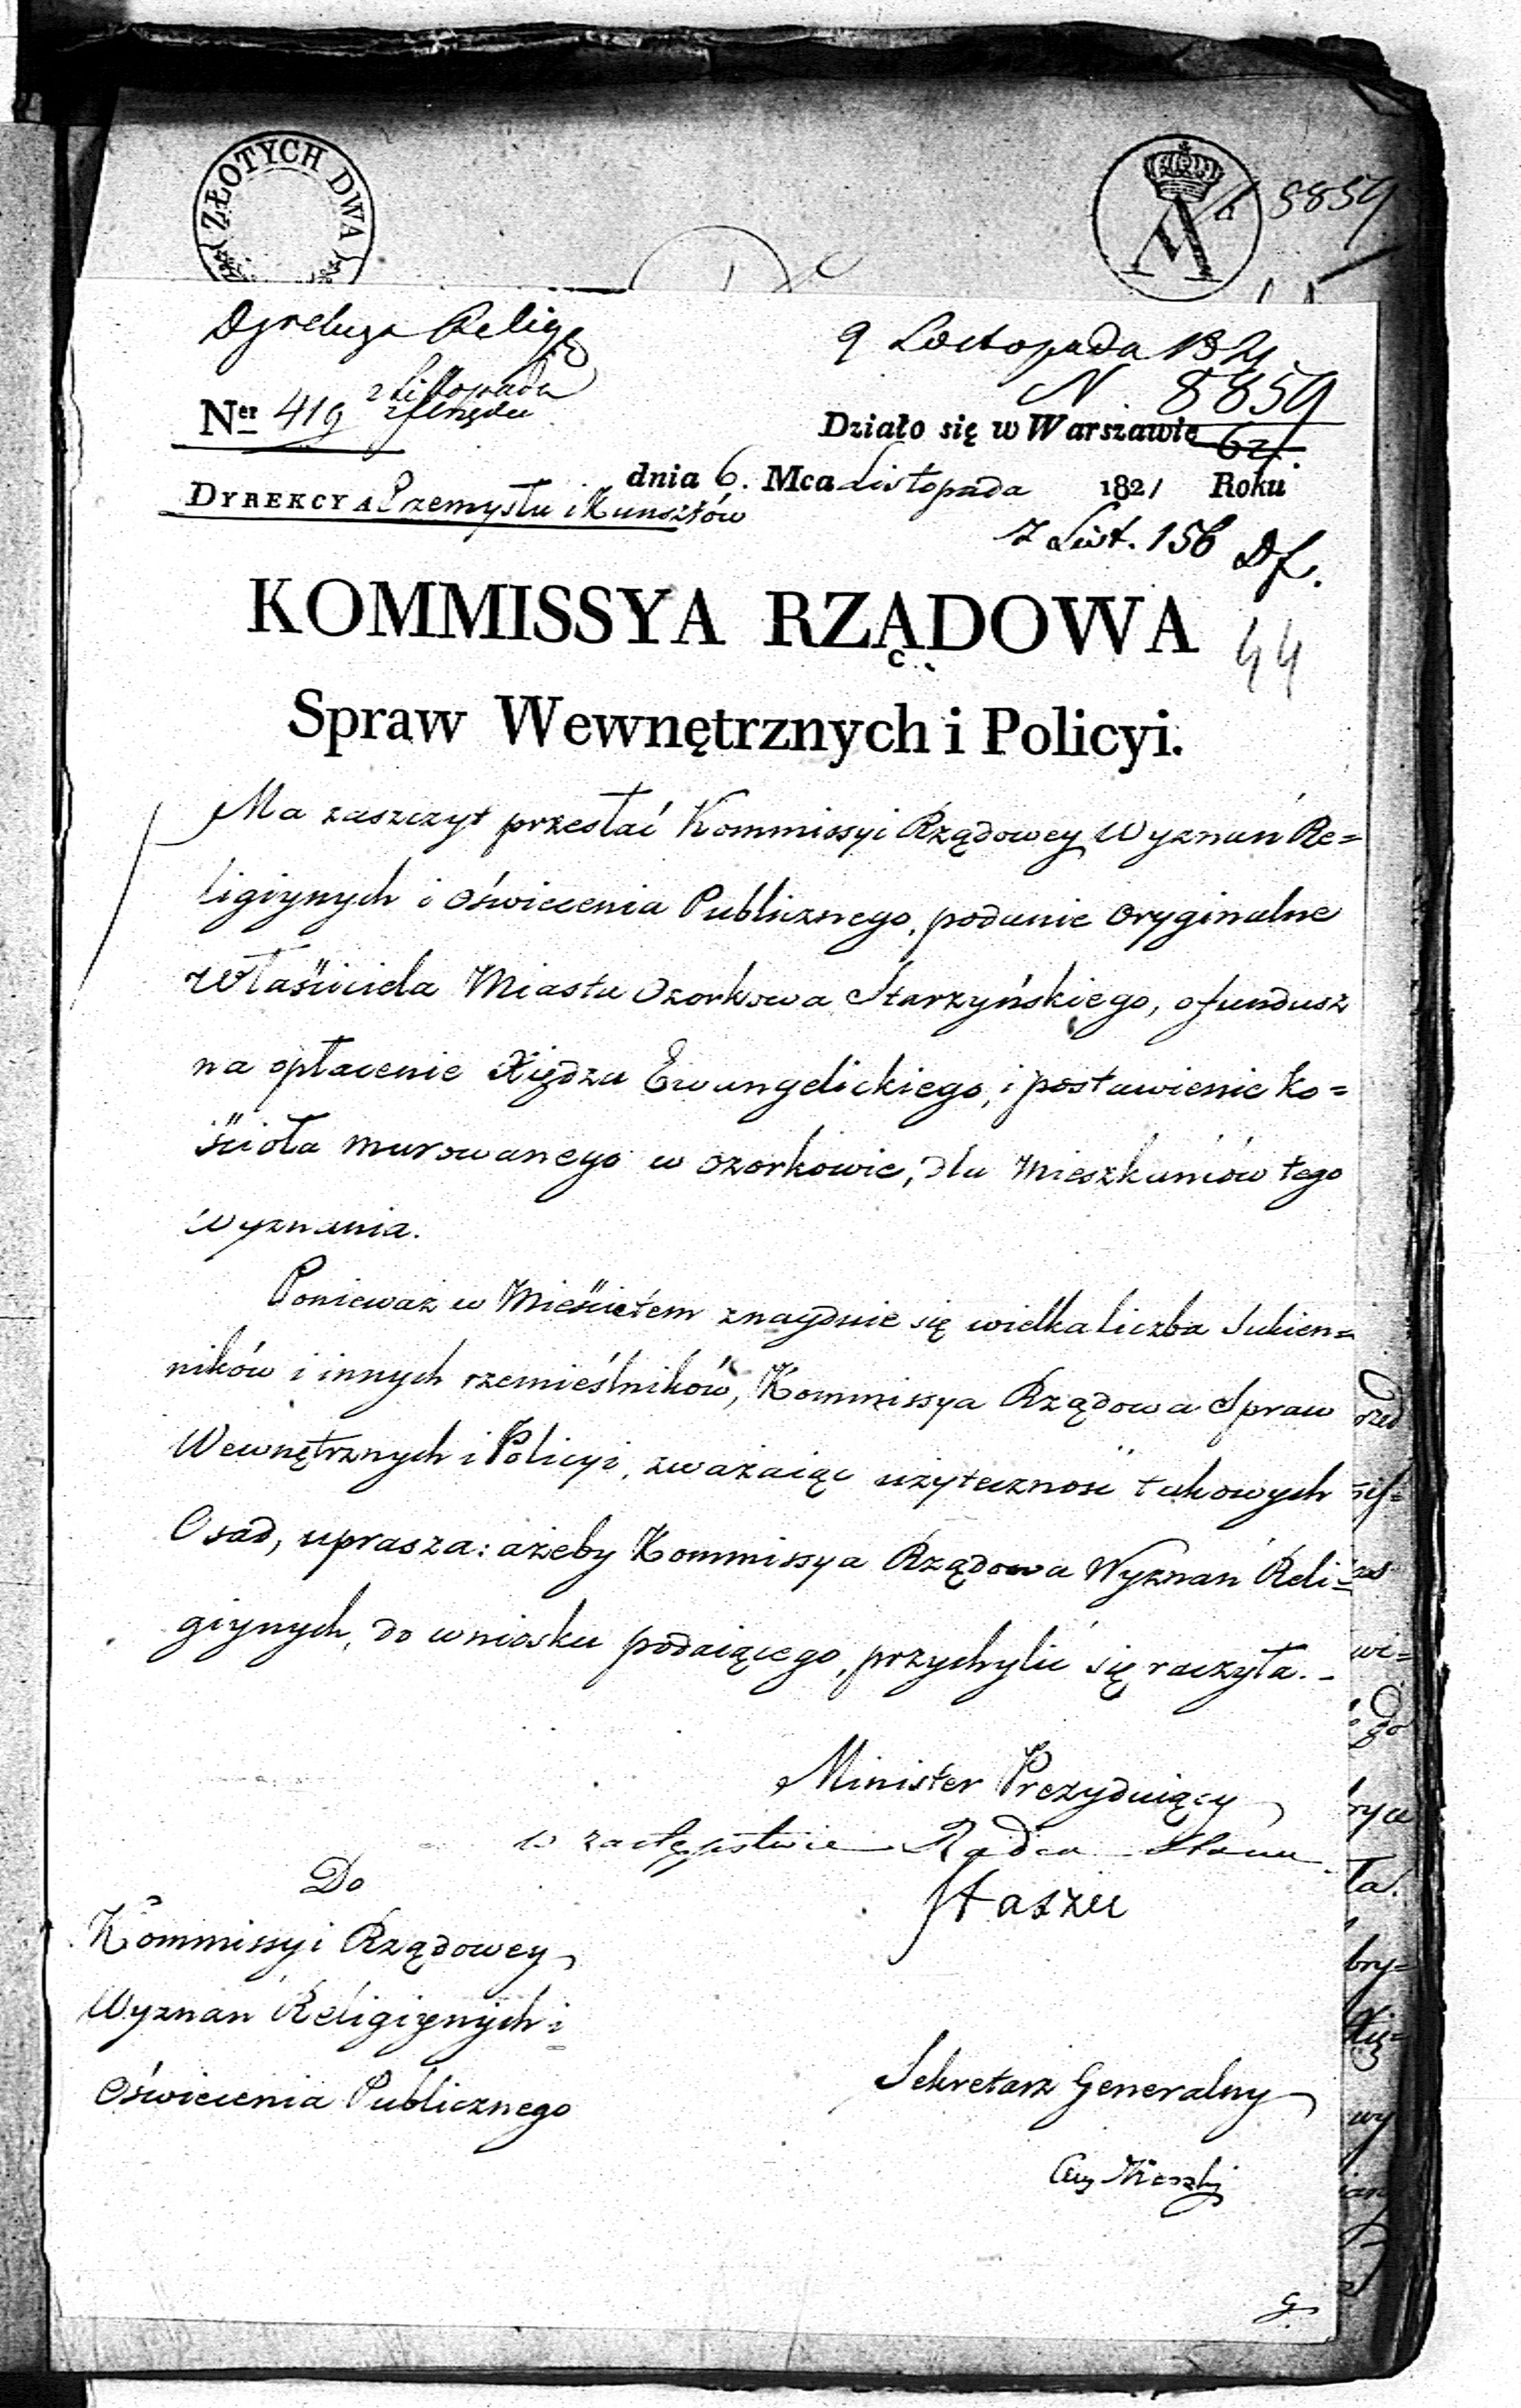 ZŁOTYCH DWA
8859
Dyrekcya Relig
9 Listopada 1821
N. 8859
Ner 419 2 Listopada
Działo się w Warszawie
dnia 6. Mca Listopada 1821 Roku
DYREKCYA Przemysłu i Kunsztów
7 List. 156
44
KOMMISSYA RZĄDOWA
Spraw Wewnętrznych i Policyi.
Ma zaszczyt przesłać Kommissyi Rządowey Wyznań Re=
ligiynych i Oświecenia Publicznego, podanie oryginalne
Właściciela Miasta Ozorkowa Starzyńskiego, o fundusz
na opłacenie Xiędza Ewangelickiego, i postawienie ko=
ścioła murowanego w Ozorkowie, dla Mieszkańców tego
wyznania.
Ponieważ w Mieście tem znayduie się wielka liczba Sukien=
ników i innych rzemieślników, Kommissya Rządowa Spraw
Wewnętrznych i Policyi, zważaiąc użyteczność takowych
Osad, uprasza: ażeby Kommissya Rządowa Wyznań Reli=
giynych, do wniosku podaiącego, przychylić się raczyła. -
Minister Prezyduiący
w zastępstwie Radca Stanu
Staszic
Do
Kommissyi Rządowey
Wyznań Religiynych i
Oświecenia Publicznego
Sekretarz Generalny